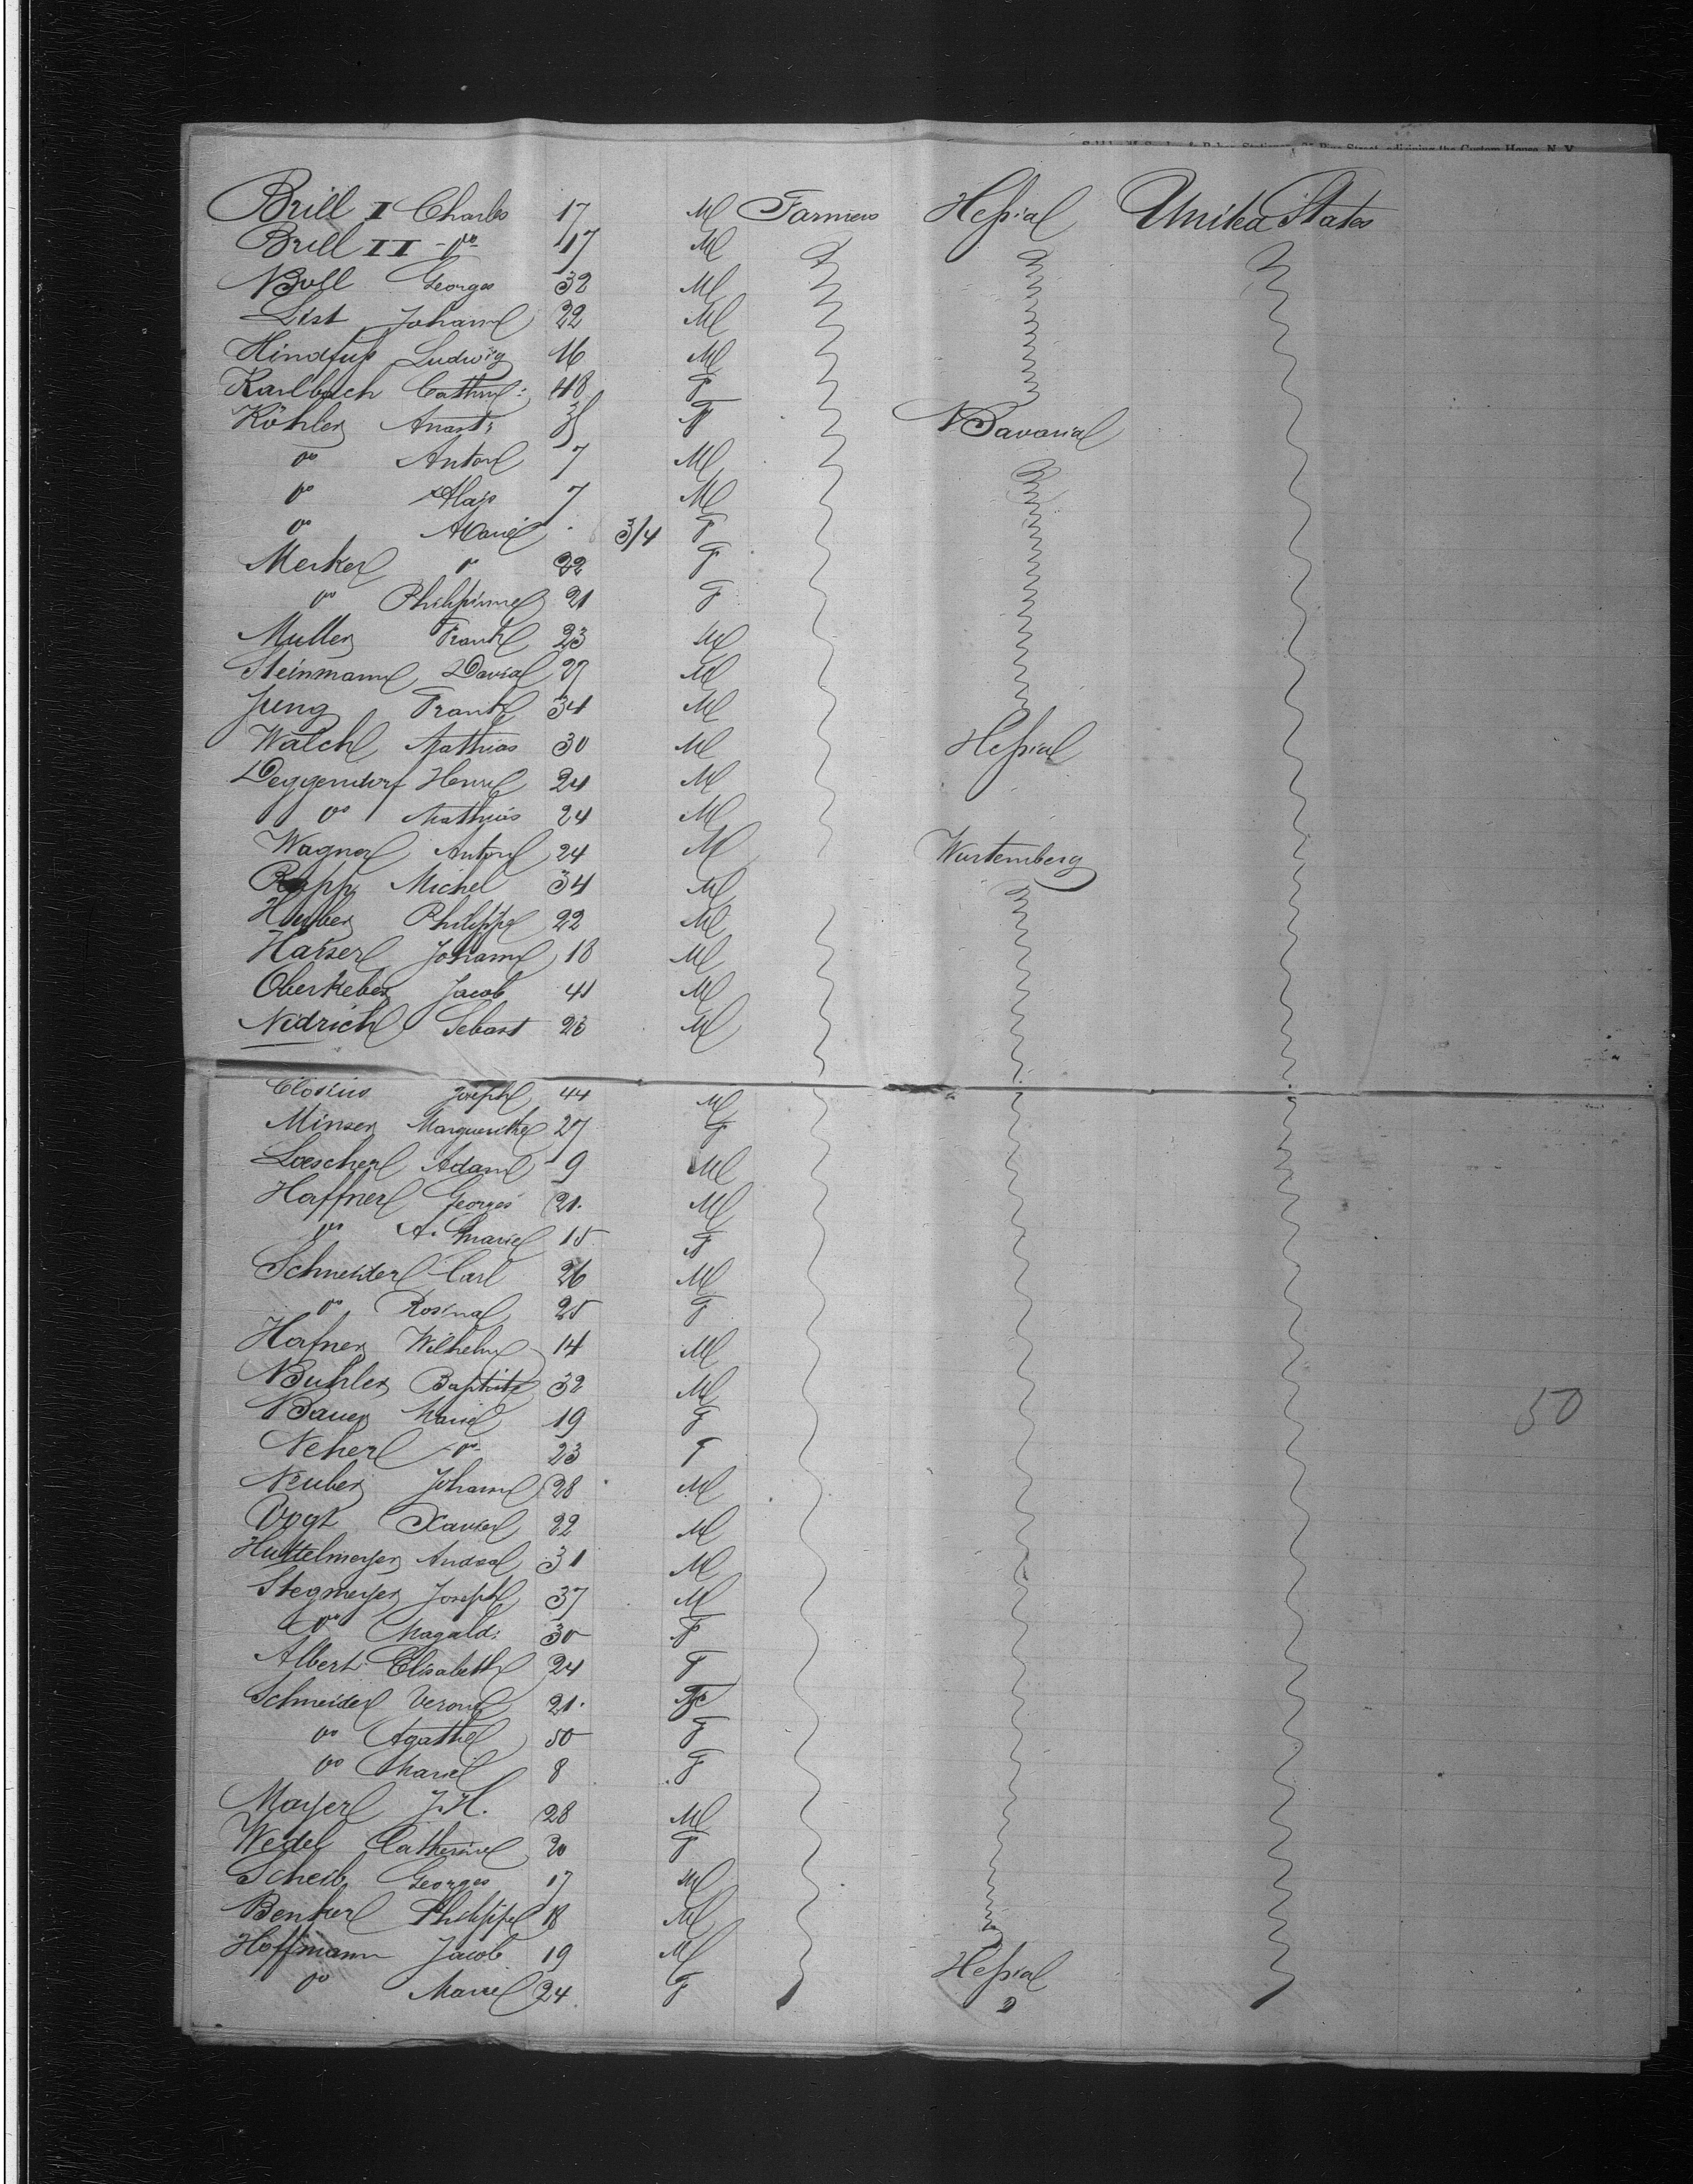 Stationers, 31 Pine Street, adjoining the Custom House, N. Y.
Brill I Charles 17 M Farmers Hessia United States
Brill II - do - 17 M
Boll Georges 32 M
List Johann 22 M
Ludwig 16 M
Karlbach Cathne: 48 F
Köhler Anast: 35 F Bavaria
do Anton 7 M
do Alajs 7 M
do Marie 3/4 F
Merkel do 22 F
do Philippine 21 F
Muller Frank 23 M
Steinmann David 27 M
Jung Frank 34 M
Walch Mathias 30 M Hessia
Deggendorf Henri 24 M
do Mathias 24 M
Wagner Anton 24 M Wurtemberg
Rupp Michel 34 M
Huber Philippe 22 M
Haiser Johann 18 M
Oberkeber Jacob 41 M
Nidrich Sebast 23 M
Closius Joseph 44 M
Minser Marguerithe 27 F
Loescher Adam 9 M
Haffner Georges 21. M
do A. Marie 15 F
Schneider Carl 26 M
do Rosina 25 F
Hafner Wilhelm 14 M
Buhler Baptiste 32 M
Bauer Marie 19 F 50
Neher - do - 23 F
Neuber Johann 28 M
Vogt Xavier 22 M
Huttelmeyer Andrea 31 M
Stegmeyer Joseph 37 M
do Magald: 30 F
Albert Elisabeth 24 F
Schneider Verone 21. F
do Agathe 50 F
do Marie 8 F
Mayer J. H. 28 M
Weidel Catherine 20 F
Scheib Georges 17 M
Benker Philippe 18 M
Hoffmann Jacob 19 M Hessia
do Marie 24 F